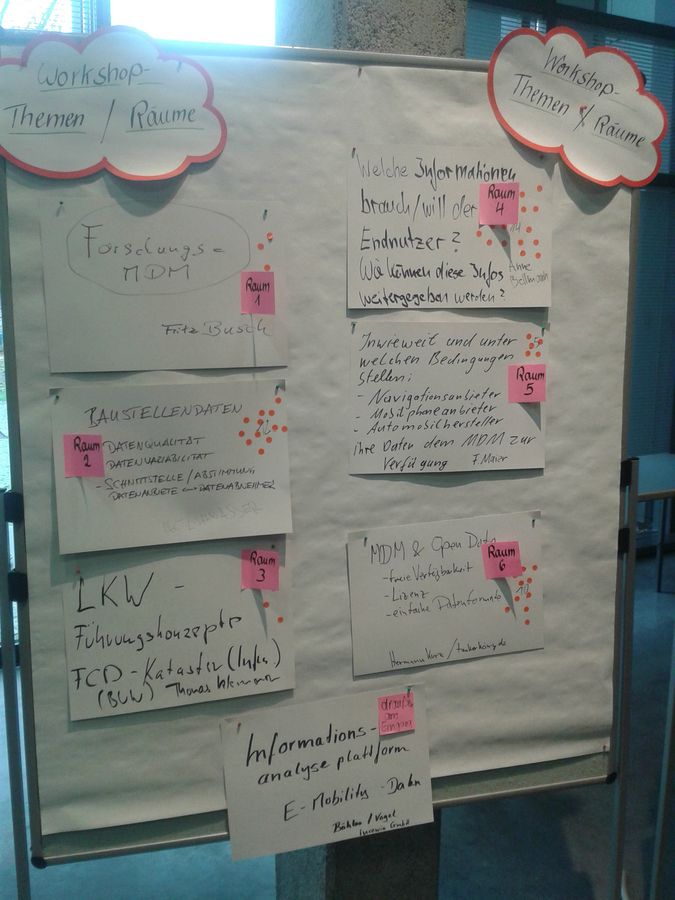 Workshop-
Themen / Räume
Workshop-
Themen / Räume
Forschungs-
MDM
Raum
1
Fritz Busch
BAUSTELLENDATEN
Raum
2
DATENQUALITÄT
DATENVARIABILITÄT
- SCHNITTSTELLE / ABSTIMMUNG
DATENANBIETE ↔ DATENABNEHMER
Raum
3
LKW
Führungskonzepte
FCD - Kataster (Infra.)
Thomas
Welche Informationen
brauch/will der
Endnutzer?
Wie können diese Infos
weitergegeben werden?
Raum
4
14
Anne
Inwieweit und unter
welchen Bedingungen
stellen:
- Navigationsanbieter
- Mobilphoneanbieter
- Automobilhersteller
ihre Daten dem MDM zur
Verfügung
F. Maier
Raum
5
MDM & Open Data
- freie Verfügbarkeit
- Lizenz
- einfache Datenformate
Raum
6
10
Hermann
Informations-
analyse plattform
E-Mobility-Daten
draußen
am
Eingang
/ Vogel
GmbH